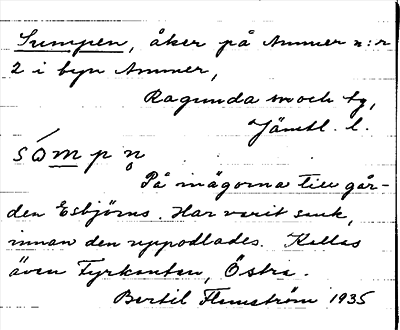 Sumpen, åker på Ammer n:r
2 i byn Ammer,
Ragunda sn och tg,
Jämtl. l.
sómpn̥
På inägorna till går-
den Esbjörns. Har varit sank,
innan den uppodlades. Kallas
även Fyrkanten, Östra.
Bertil Flemström 1935